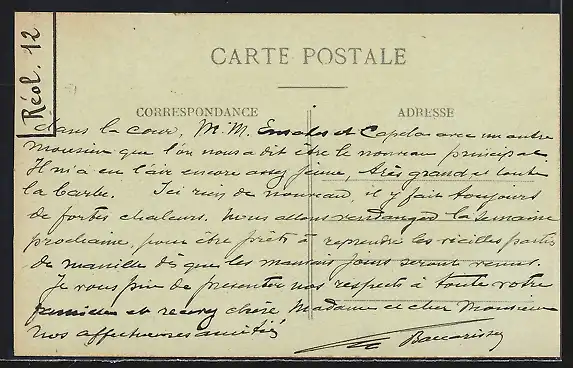 Réol. 12
CARTE POSTALE
CORRESPONDANCE
ADRESSE
dans la cour, M.M. et Capdos avec un autre
monsieur que l'on nous a dit être le nouveau principal.
Il m'a eu l'air encore assez jeune, très grand et toute
la barbe. Ici rien de nouveau, il y fait toujours
de fortes chaleurs. Nous allons vendanger la semaine
prochaine, pour être prêts à reprendre les vieilles parties
de manille dès que les mauvais jours seront venus.
Je vous prie de présenter nos respects à toute votre
famille et recevez chère Madame et cher Monsieur
nos affectueuses amitiés